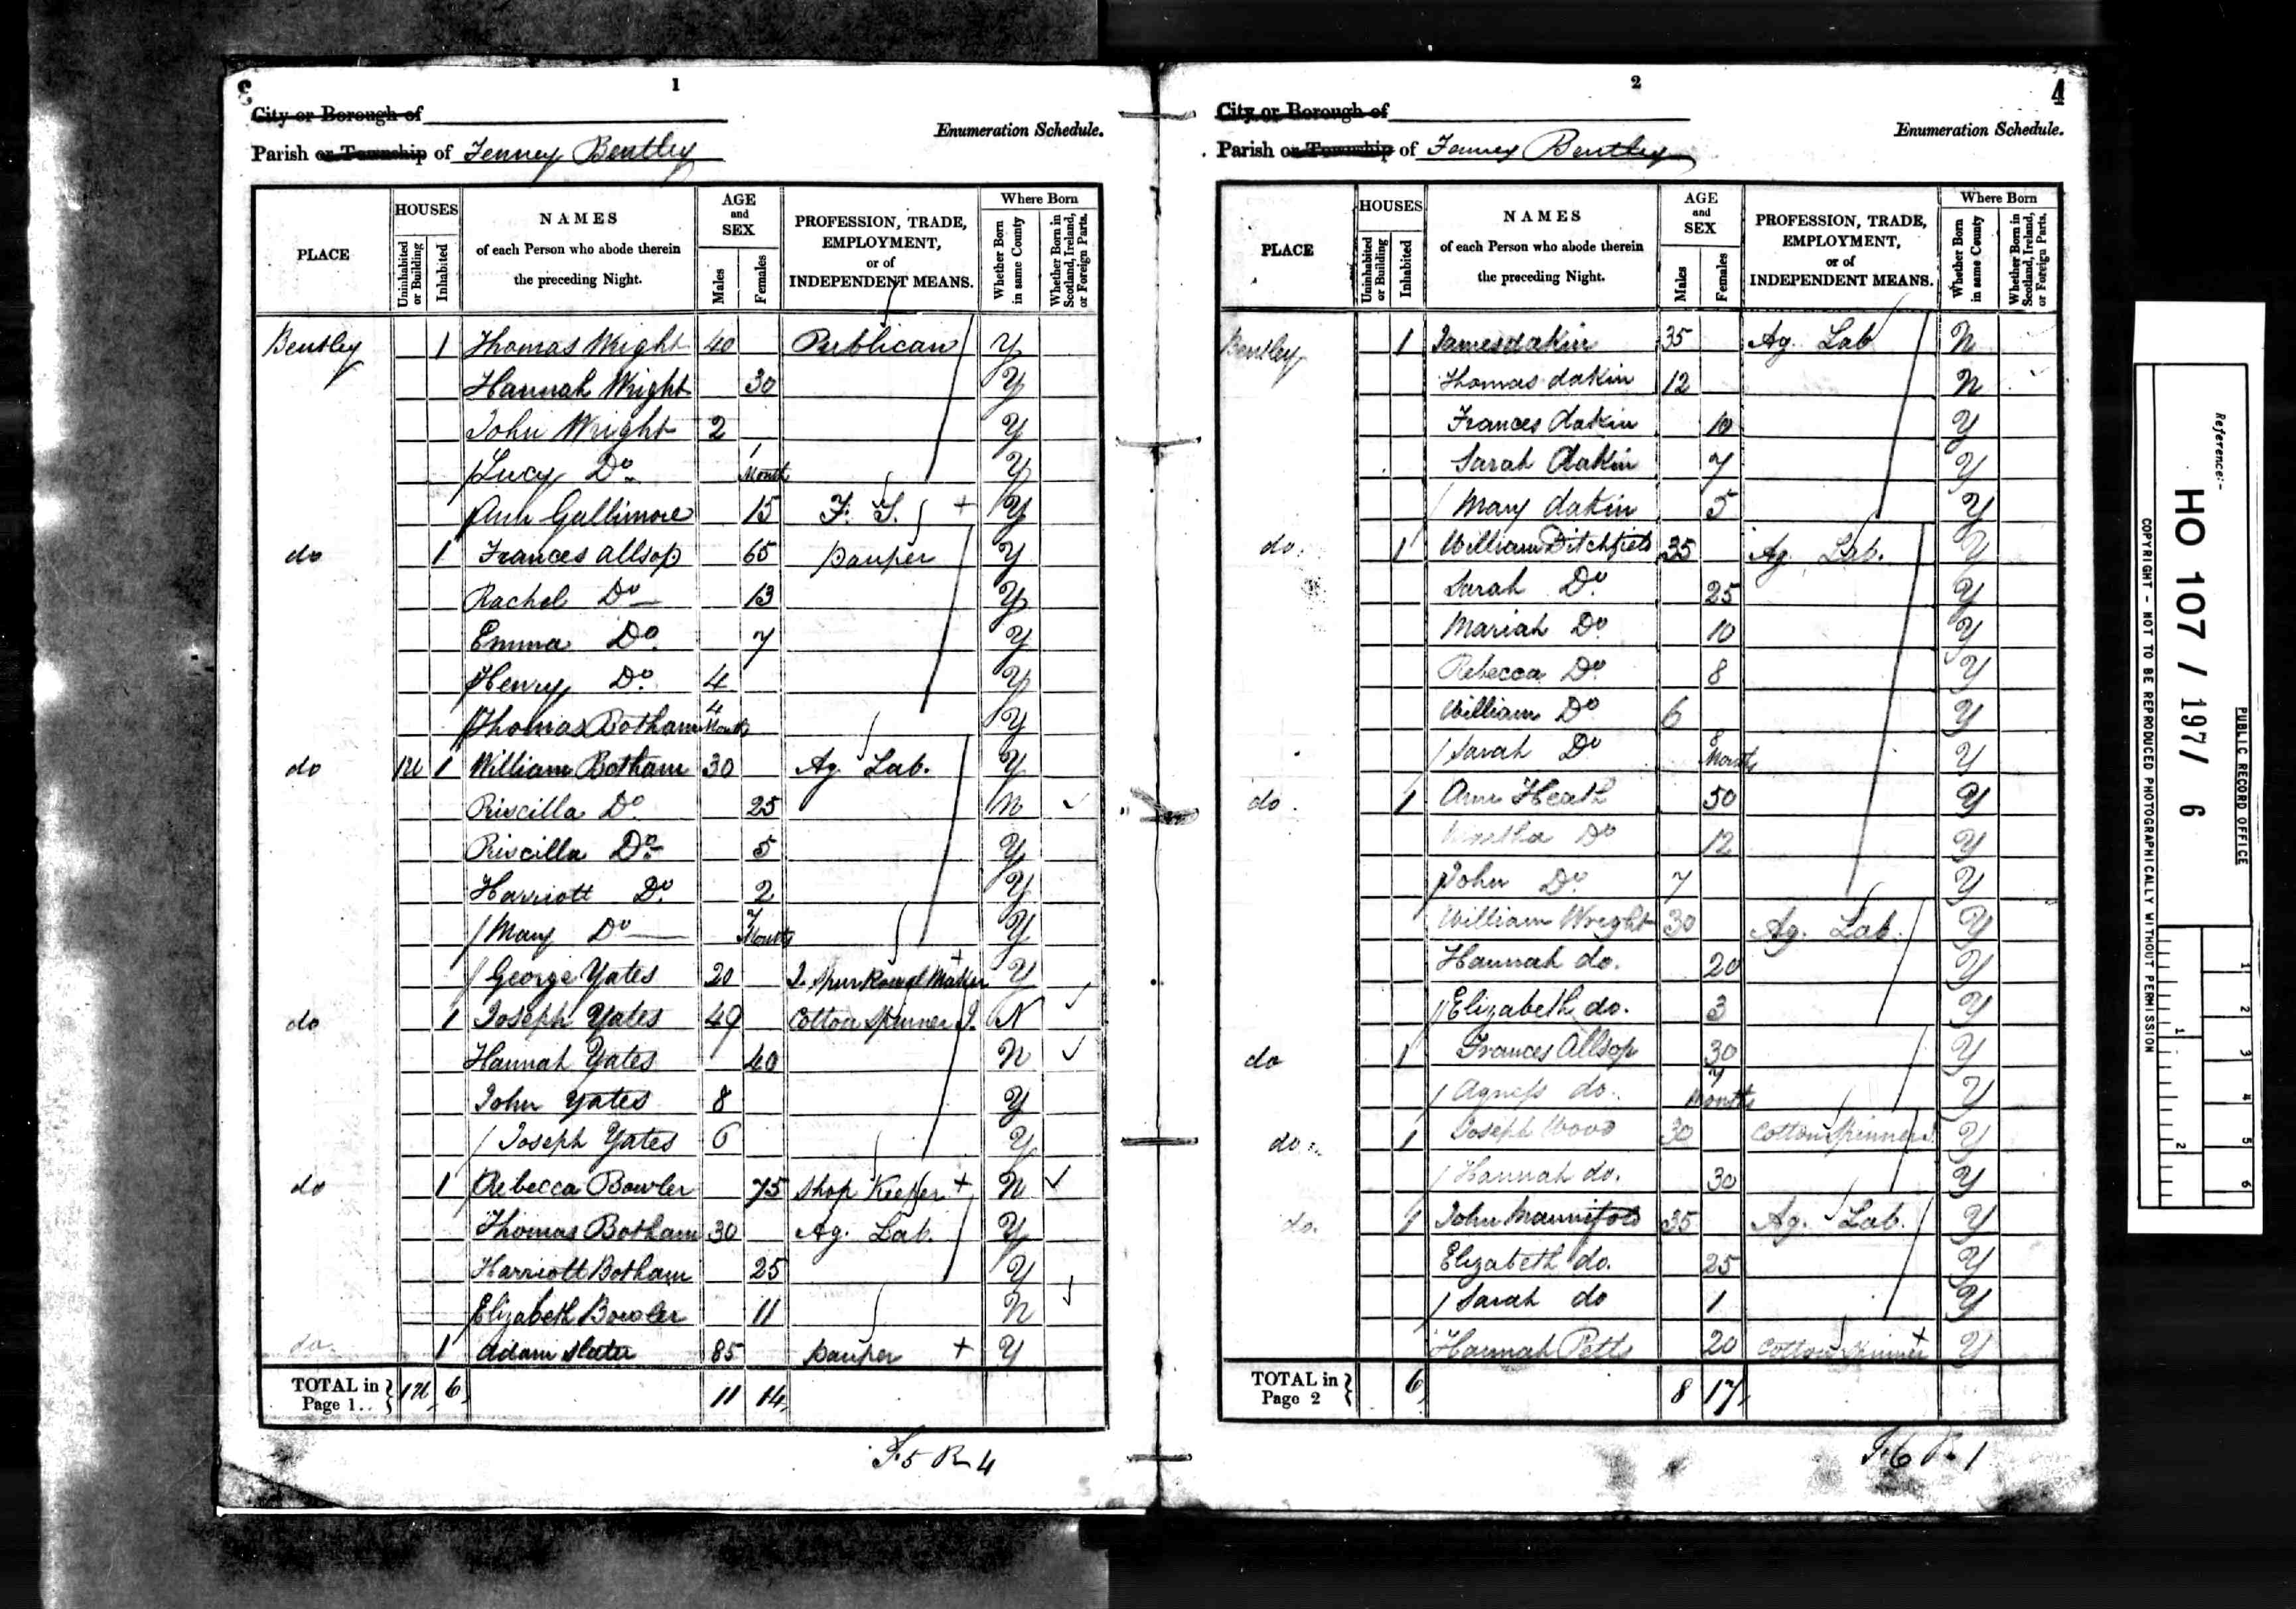 3
1
City or Borough of
Enumeration Schedule.
Parish or Township of Fenney Bentley
PLACE
HOUSES
Uninhabited or Building
Inhabited
NAMES of each Person who abode therein the preceding Night.
AGE and SEX
Males
Females
PROFESSION, TRADE, EMPLOYMENT, or of INDEPENDENT MEANS.
Where Born
Whether Born in same County
Whether Born in Scotland, Ireland, or Foreign Parts.
Bentley 1 Thomas Wright 40 Publican Y
Hannah Wright 30 Y
John Wright 2 Y
Lucy Do 1 Month Y
Ann Gallimore 15 F. S. Y
do 1 Frances allsop 65 pauper Y
Rachel Do 13 Y
Emma Do 7 Y
Henry Do 4 Y
Thomas Botham 4 Month Y
do 1U 1 William Botham 30 Ag. Lab. Y
Priscilla Do 25 N
Priscilla Do 5 Y
Harriott Do 2 Y
Mary Do 7 Months Y
George Yates 20 Maker Y
do 1 Joseph Yates 49 Cotton Spinner J. N
Hannah Yates 40 N
John Yates 8 Y
Joseph Yates 6 Y
do 1 Rebecca Bowler 75 Shop Keeper N
Thomas Botham 30 Ag. Lab. Y
Harriott Botham 25 Y
Elizabeth Bowler 11 N
do 1 Adam Slater 85 pauper Y
TOTAL in Page 1.. 1U 6 11 14
F.5 R 4
2
4
City or Borough of
Enumeration Schedule.
Parish or Township of Fenney Bentley
PLACE
HOUSES
Uninhabited or Building
Inhabited
NAMES of each Person who abode therein the preceding Night.
AGE and SEX
Males
Females
PROFESSION, TRADE, EMPLOYMENT, or of INDEPENDENT MEANS.
Where Born
Whether Born in same County
Whether Born in Scotland, Ireland, or Foreign Parts.
Bentley 1 James dakin 35 Ag. Lab N
Thomas dakin 12 N
Frances dakin 10 Y
Sarah dakin 7 Y
Mary dakin 5 Y
do 1 William Ditchfield 35 Ag. Lab. Y
Sarah Do 25 Y
Mariah Do 10 Y
Rebecca Do 8 Y
William Do 6 Y
Sarah Do 8 Months Y
do 1 Ann Heath 50 Y
Do 12 Y
John Do 7 Y
William Wright 30 Ag. Lab. Y
Hannah do. 20 Y
Elizabeth do. 3 Y
do 1 Frances Allsop 30 Y
Agness do. 7 Months Y
do 1 Joseph Wood 30 Cotton Spinner J. Y
Hannah do. 30 Y
do. 1 John Mannifold 35 Ag. Lab. Y
Elizabeth do. 25 Y
Sarah do 1 Y
Hannah Petts 20 Cotton Spinner Y
TOTAL in Page 2 6 8 17
F.6 1
Reference:-
HO 107 / 197 / 6
PUBLIC RECORD OFFICE
COPYRIGHT - NOT TO BE REPRODUCED PHOTOGRAPHICALLY WITHOUT PERMISSION
1 2 3 4 5 6
1 2